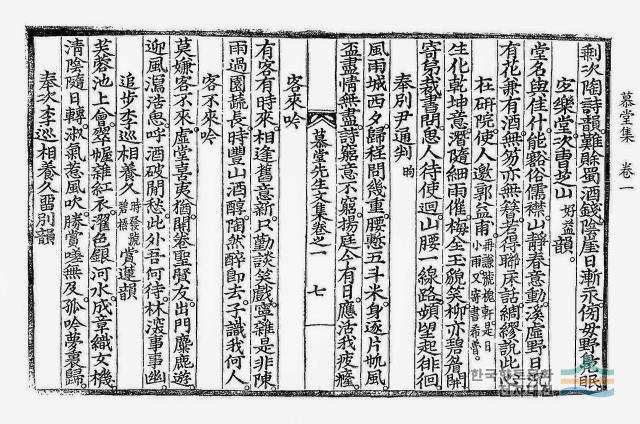 慕堂集 卷一
剩次陶詩韻。難賒蜀酒錢。陰崖日漸永。傍毋野鳧眠。
空樂堂。次曹芝山 好益 韻。
堂名與佳什。能豁俗儒襟。山靜春意動。溪虛野日
有花兼有酒。無笏亦無簪。若得聯床話。綢繆說此
在研院。使人邀郭益甫 再謙 龍槐軒。是日小雨。又寄書希魯。
生化乾坤意。潛隨細雨催。梅全玉貌笑。柳亦碧眉開
寄昂裁書問。思人待使迴。山腰一線路。頻望起徘徊。
奉別尹通判 昫
風雨城西夕。歸程問幾重。腰慙五斗米。身逐片帆風。
盃盡情無盡。詩窮意不窮。揚庭今有日。應活我疲癃。
慕堂先生文集卷之一 七
客來吟
有客有時來。相逢舊意新。只勤談笑戲。寧雜是非陳。
雨過園蔬長。時豐山酒醇。陶然醉卽去。子識我何人。
客不來吟
莫嫌客不來。虛堂喜夷猶。開卷聖賢友。出門麋鹿遊。
迎風瀉浩思。呼酒破閒愁。此外吾何待。林深事事幽
追步李巡相養久 時發 號碧梧 賞蓮韻
芙蓉池上會。翠幄雜紅衣。濯色銀河水。成章織女機。
淸陰隨日轉。淑氣惹風吹。勝賞嗟無及。孤吟夢裏歸。
奉次李巡相養久留別韻